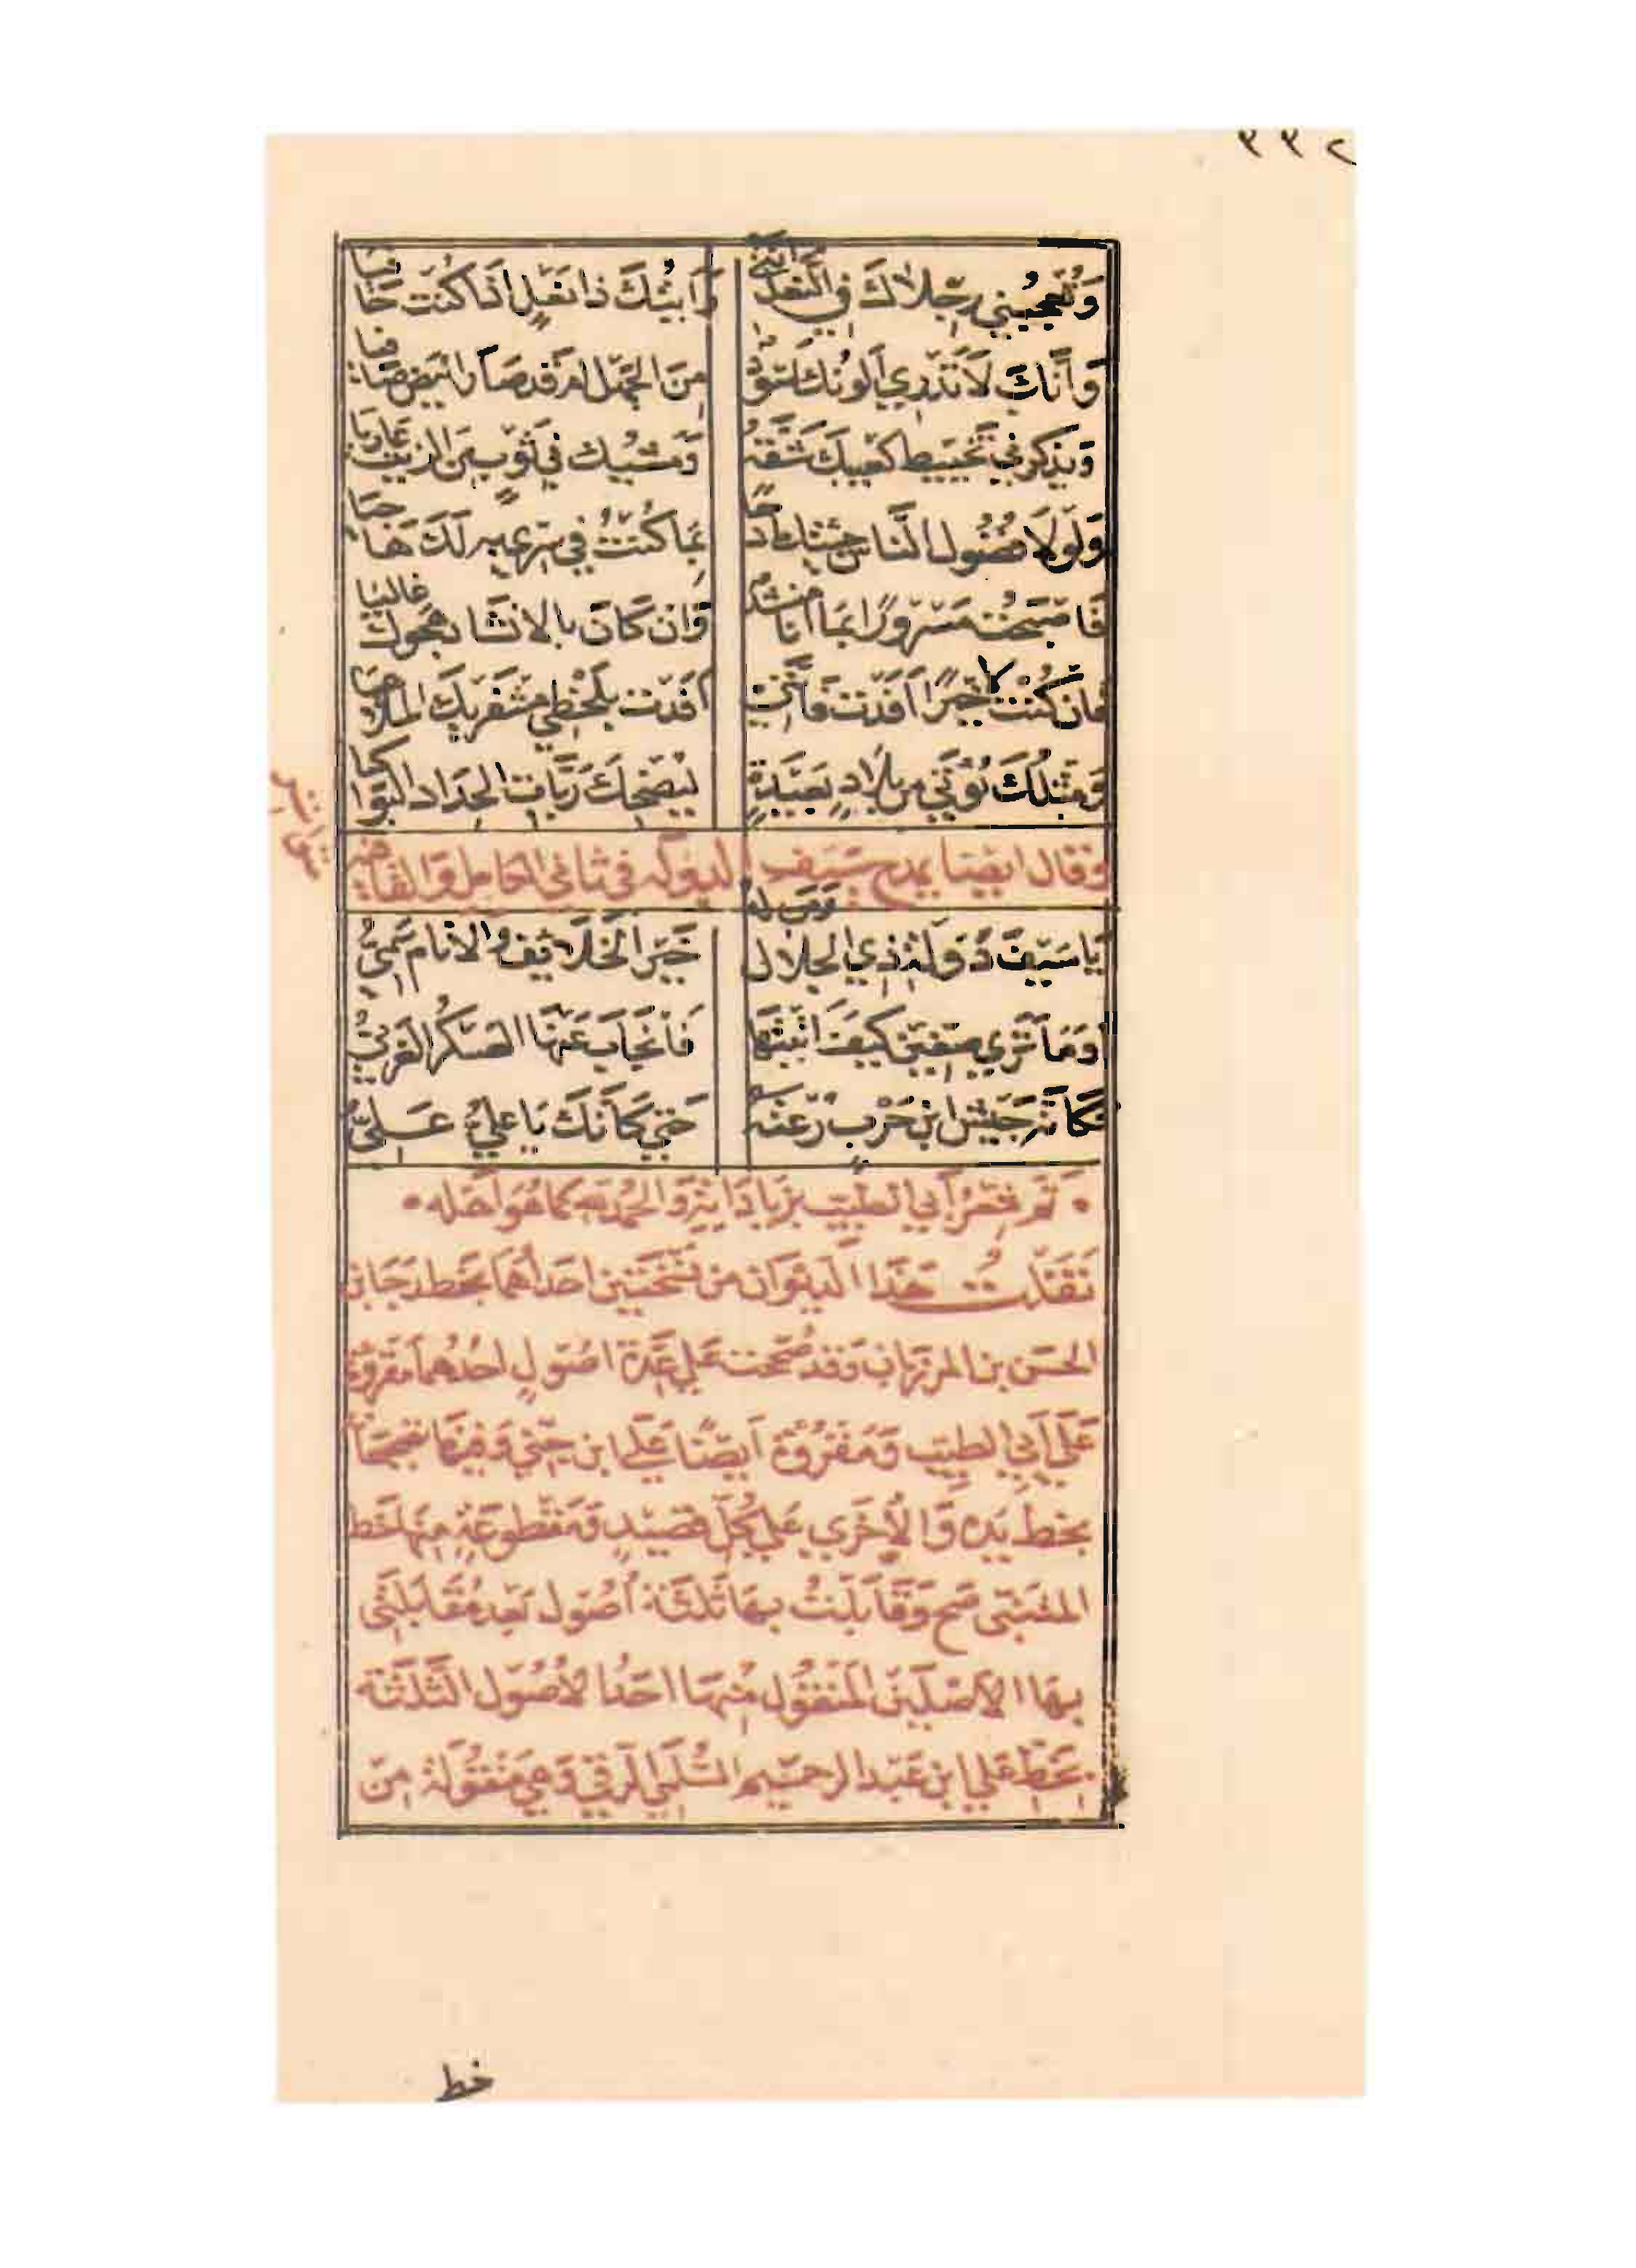 ٢٣٣
وَتُعْجِبُني رِجلاكَ في النَّعلِ انَّني وَرَأيتُكَ ذا نَعْلٍ اذا كُنتَ حَافيا
وَأنَّكَ لَا تَدْرِي ألَونُكَ اسْوَدٌ مِنَ الجَهْلِ امْ قَد صَارَ ابْيَضَ صَافيا
وَيُذكِرُني تَخييطُ كَعبِكَ شَقَّهُ وَمَشْيَكَ في ثَوْبٍ مِنَ الزيتِ عَاريا
وَلَوْلَا فُضُولُ النَّاسِ جِئتُكَ مَادِحًا بِمَا كُنْتُ في سِرّي بِهِ لَكَ هَاجيا
فَاصْبَحْتَ مَسْرُورًا بِمَا انَا مُنشِدٌ وَان كَانَ بالانشَادِ هَجْوُكَ غاليا
فان كُنْتَ لا خَيْرًا أفَدْتَ فَإنَّني افَدْتُ بِلَحْظِي مِشْفَرَيكَ الملاهيا
وَمِثلُكَ يُؤتَى مِن بِلَادٍ بَعيْدَةٍ لِيُضحِكَ رَبَّاتِ الحِدَادِ البَوَاكيا
وقال ايضا يمدح سيف الدوله في ثاني الكامل والقافيه
يَا سَيفَ دَوْلَةِ ذِي الجلالِ وَمَن لهُ خَيْرُ الخَلَائِفِ والانَامِ سَمِيُّ
اوَمَا تَرى صِفّينَ كَيفَ اتَيتَهَا فَانجَابَ عَنْهَا العَسكَرُ الغَربيُّ
فَكَأنَّهُ جَيْشُ ابنِ حَرْبٍ رُعتَهُ حَتى كَانكَ يَا عليُّ عَليُّ
تم شعر أبي الطيب بزياداته والحمد لله كما هو أهله
نَقَلْتُ هَذا الديوَان من نسختين احداهما بخط رجا بن
الحسَن بن المرزبان وَقد صُححت عَلى عِدة اصُولٍ احدهما مَقروة
عَلى أبي الطيب وَمَقروة أيضًا على ابن جني وَفيها تصحيحًا
بخط يَده وَالاخرى على كل قصيدٍ وَمقطوعَةٍ منها بخط
المتنبي صح وَقابَلتُ بها ثلثة أصُول بَعد مقابلتي
بها الاصلين المنقول منها احدا لأصُول الثلثة
بخط علي ابن عَبد الرحيم السُّلمي الرقي وَهي منقولة من
خط